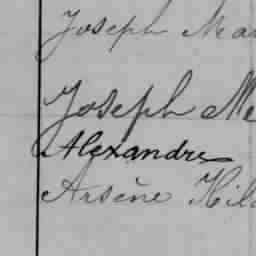 Joseph Ma
Joseph Me
Alexandre
Arsène Hil